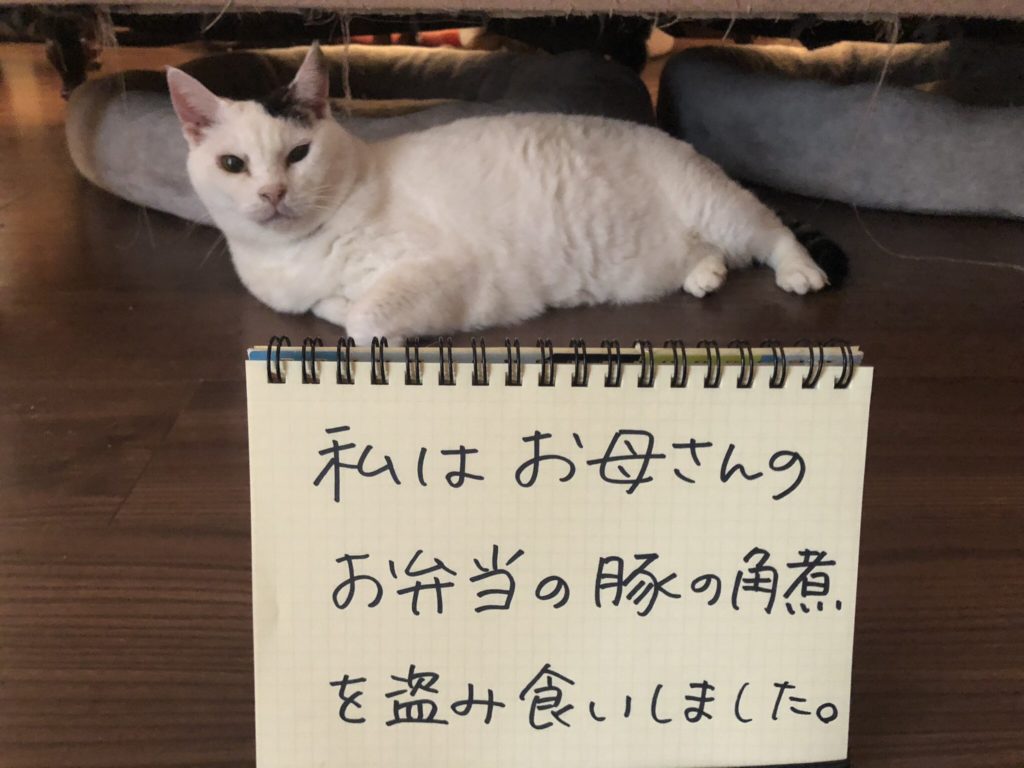 私はお母さんの
お弁当の豚の角煮
を盗み食いしました。